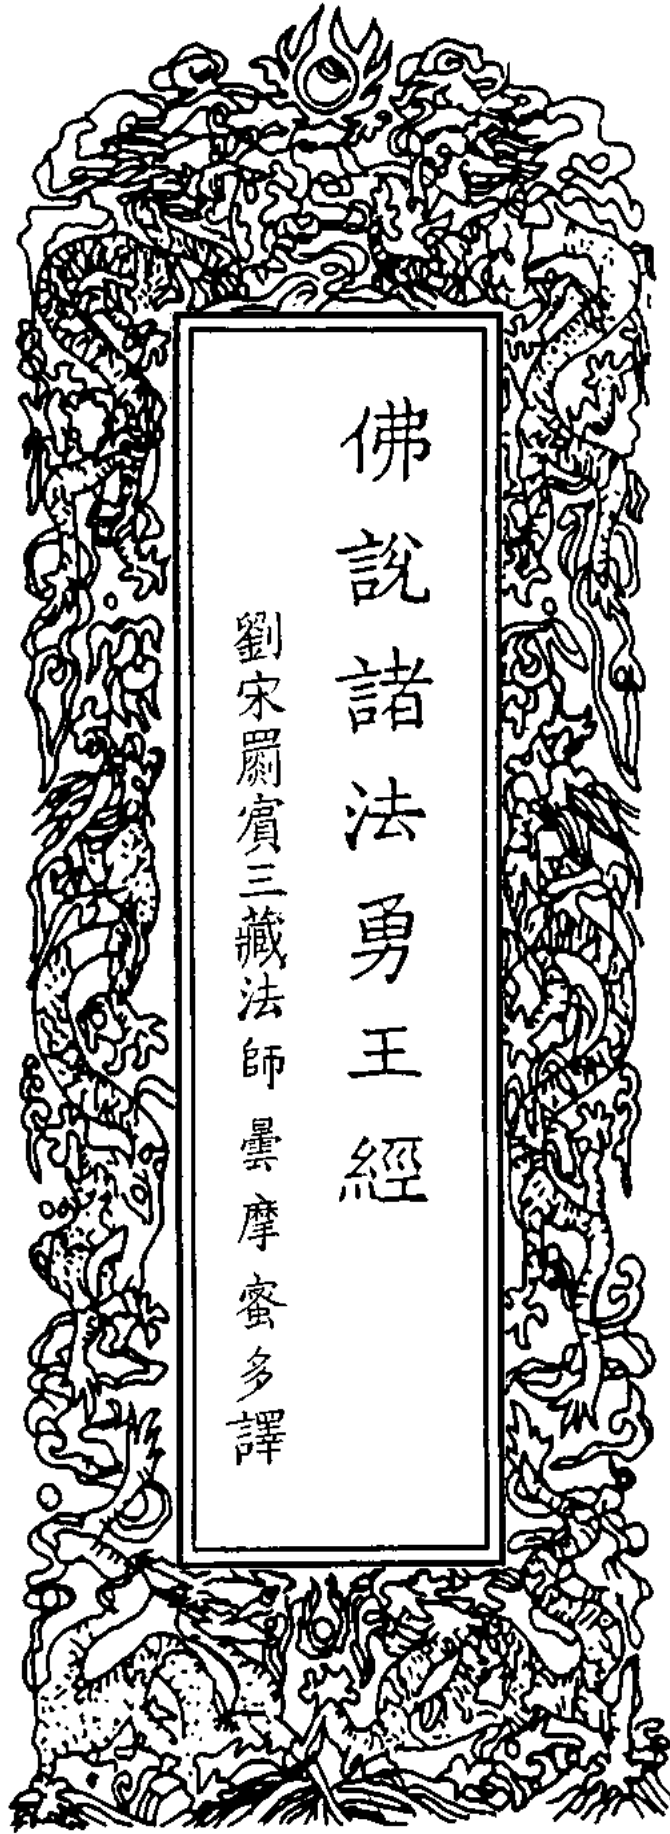 佛說諸法勇王經
劉宋罽賓三藏法師曇摩蜜多譯